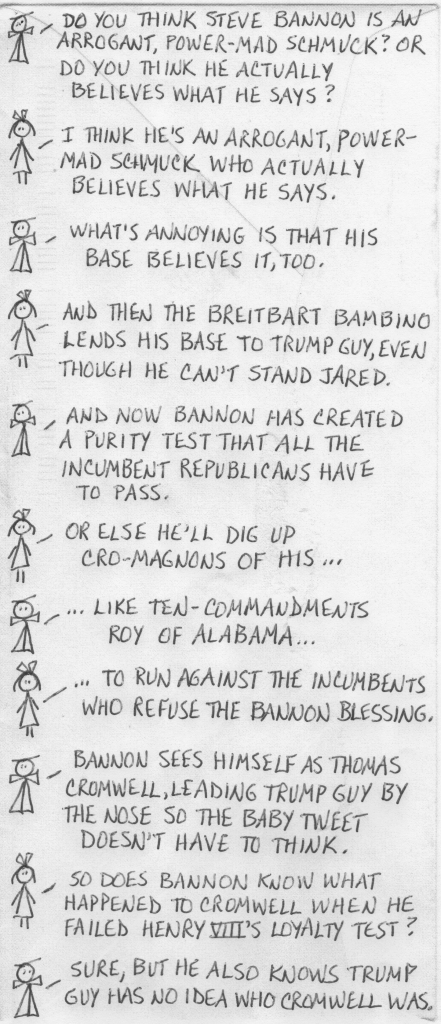 DO YOU THINK STEVE BANNON IS AN
ARROGANT, POWER-MAD SCHMUCK? OR
DO YOU THINK HE ACTUALLY
BELIEVES WHAT HE SAYS?
I THINK HE'S AN ARROGANT, POWER-
MAD SCHMUCK WHO ACTUALLY
BELIEVES WHAT HE SAYS.
WHAT'S ANNOYING IS THAT HIS
BASE BELIEVES IT, TOO.
AND THEN THE BREITBART BAMBINO
LENDS HIS BASE TO TRUMP GUY, EVEN
THOUGH HE CAN'T STAND JARED.
AND NOW BANNON HAS CREATED
A PURITY TEST THAT ALL THE
INCUMBENT REPUBLICANS HAVE
TO PASS.
OR ELSE HE'LL DIG UP
CRO-MAGNONS OF HIS...
... LIKE TEN-COMMANDMENTS
ROY OF ALABAMA...
... TO RUN AGAINST THE INCUMBENTS
WHO REFUSE THE BANNON BLESSING.
BANNON SEES HIMSELF AS THOMAS
CROMWELL, LEADING TRUMP GUY BY
THE NOSE SO THE BABY TWEET
DOESN'T HAVE TO THINK.
SO DOES BANNON KNOW WHAT
HAPPENED TO CROMWELL WHEN HE
FAILED HENRY VIII'S LOYALTY TEST?
SURE, BUT HE ALSO KNOWS TRUMP
GUY HAS NO IDEA WHO CROMWELL WAS.